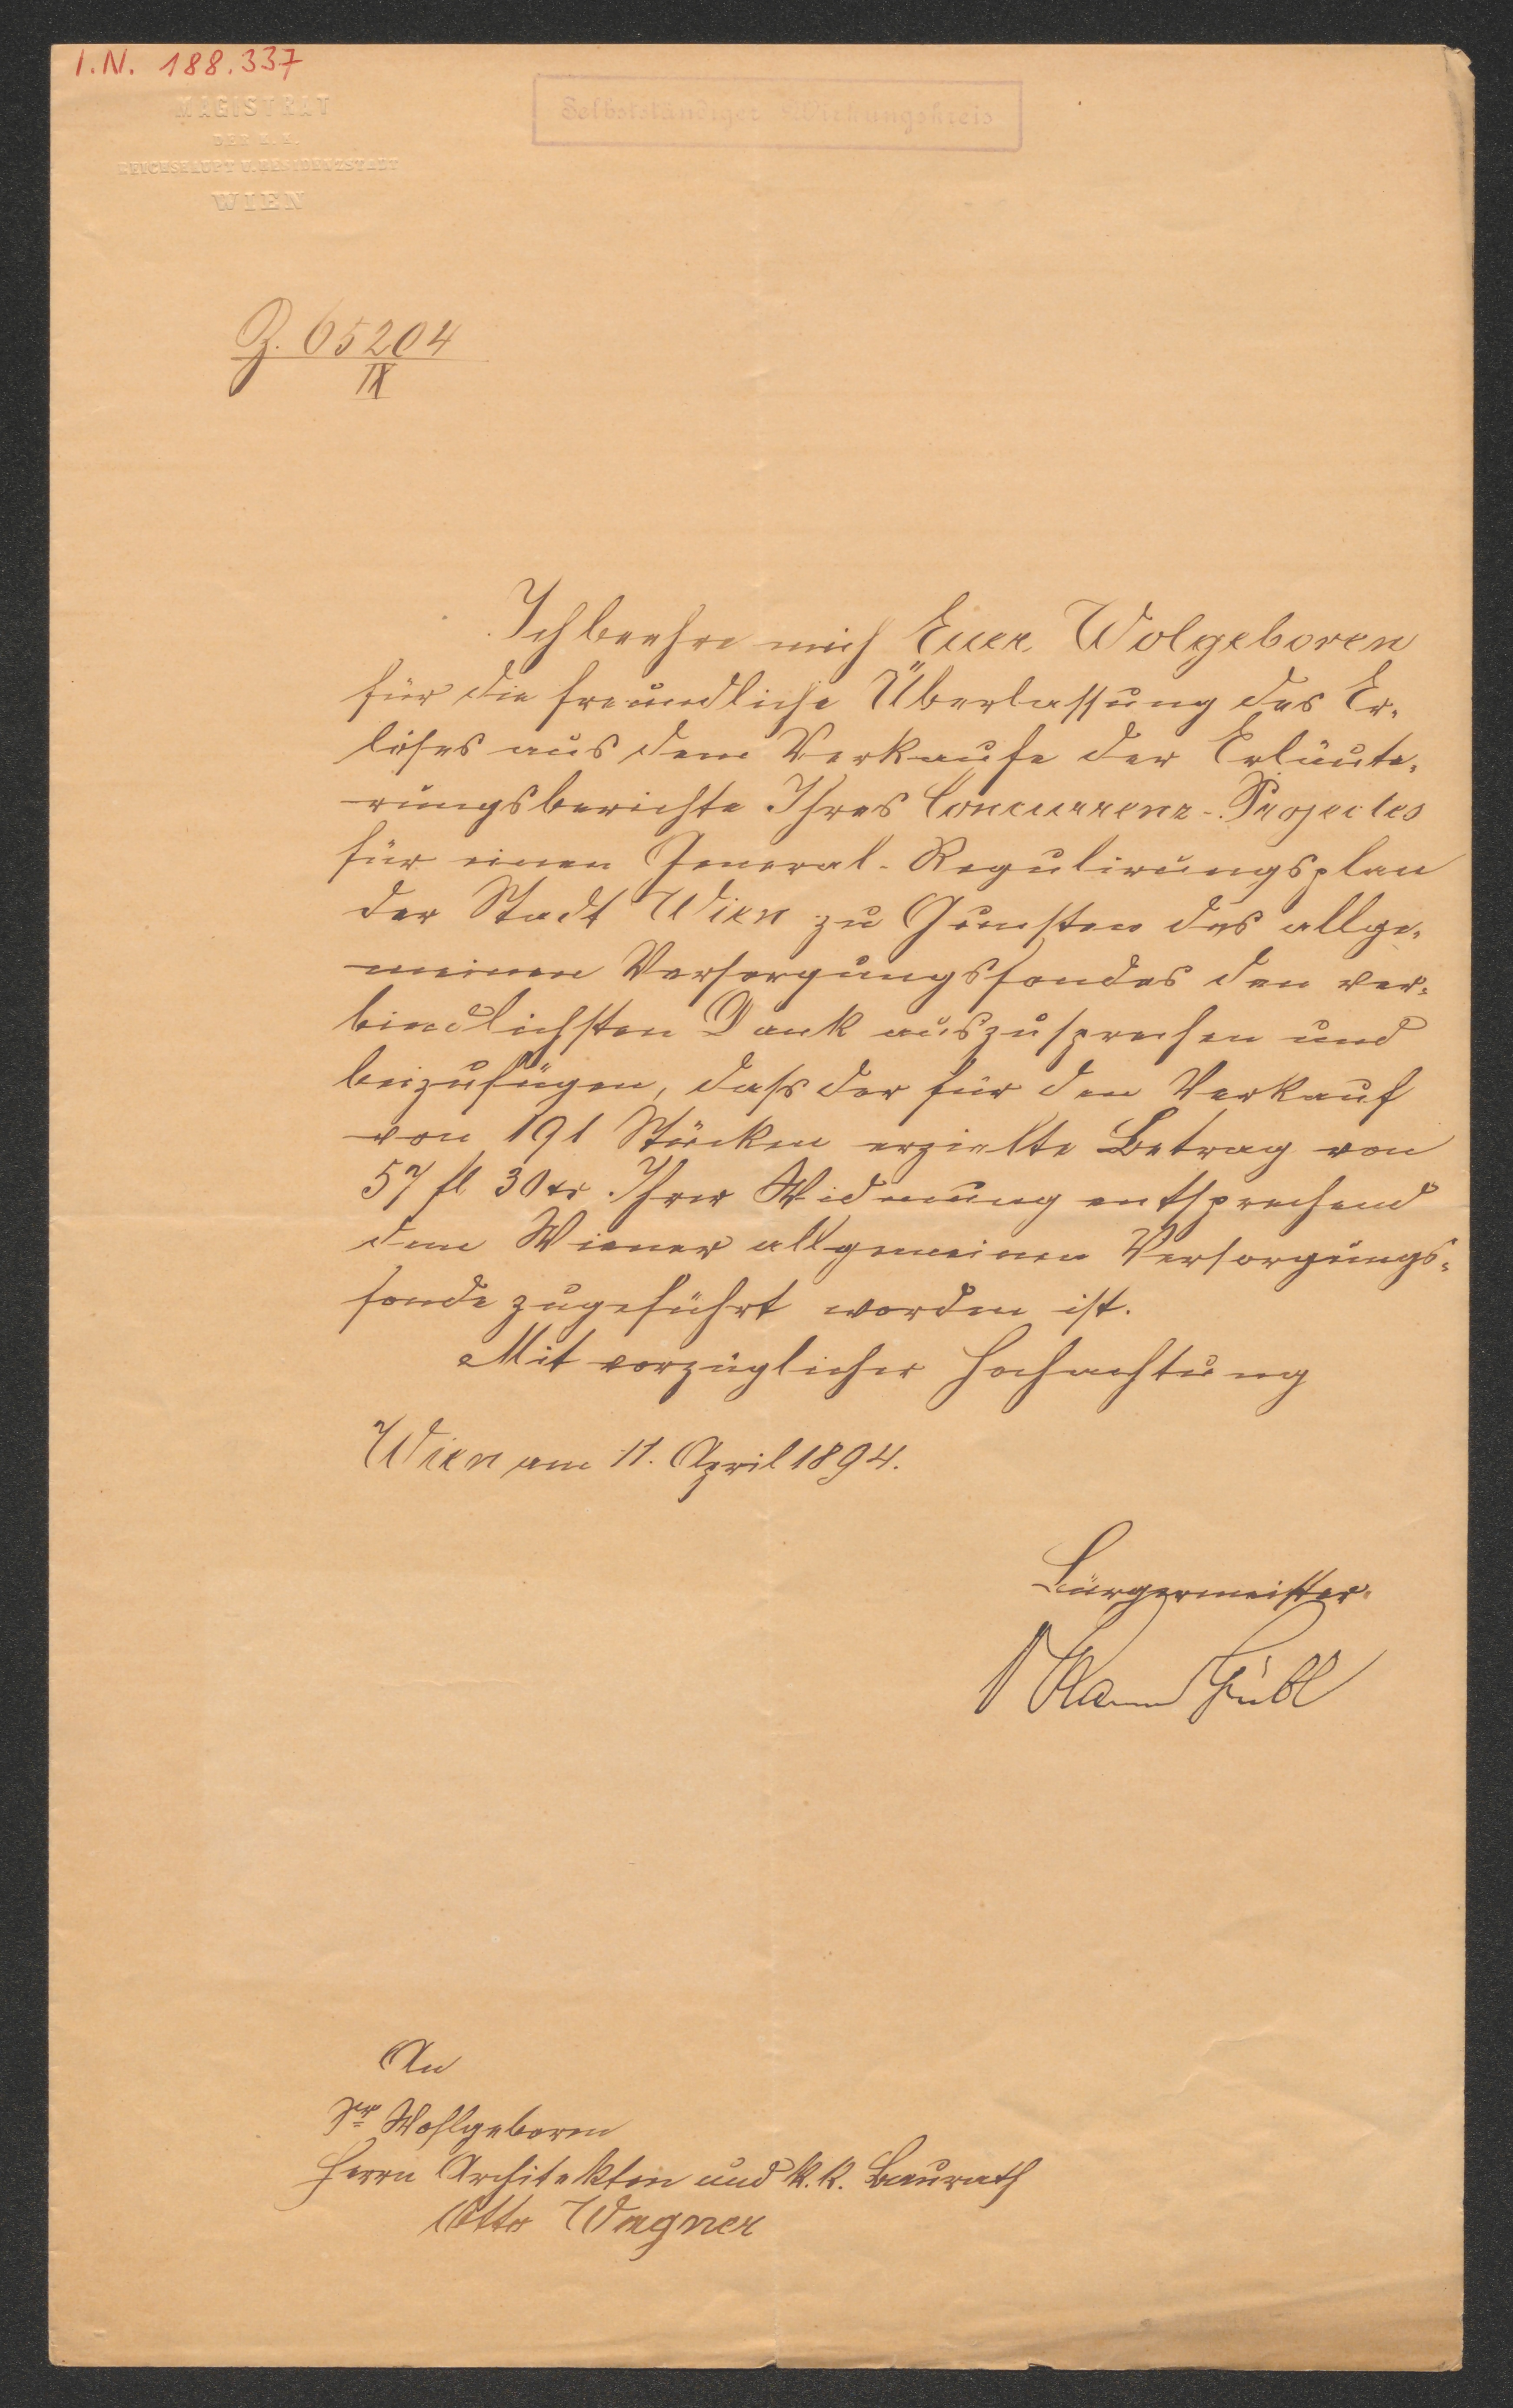 I.N. 188.337
MAGISTRAT
DER K.K.
REICHSHAUPT U. RESIDENZSTADT
WIEN
Selbstständiger Wirkungskreis
Z. 65204
IX
Ich beehre mich Euer Wolgeboren
für die freundliche Überlassung des Er-
löses aus dem Verkaufe der Erläute-
rungsberichte Ihres Concurrenz-Projectes
für einen General-Regulirungsplan
der Stadt Wien zu Gunsten des allge-
meinen Versorgungsfondes den ver-
bindlichsten Dank auszusprechen und
beizufügen, dass der für den Verkauf
von 191 Stücken erzielte Betrag von
57 fl 30 kr Ihrer Widmung entsprechend
dem Wiener allgemeinen Versorgungs-
fonde zugeführt worden ist.
Mit vorzüglicher Hochachtung
Wien am 11. April 1894.
Bürgermeister
An
Sr Wohlgeboren
Herrn Architekten und k.k. Baurath
Otto Wagner